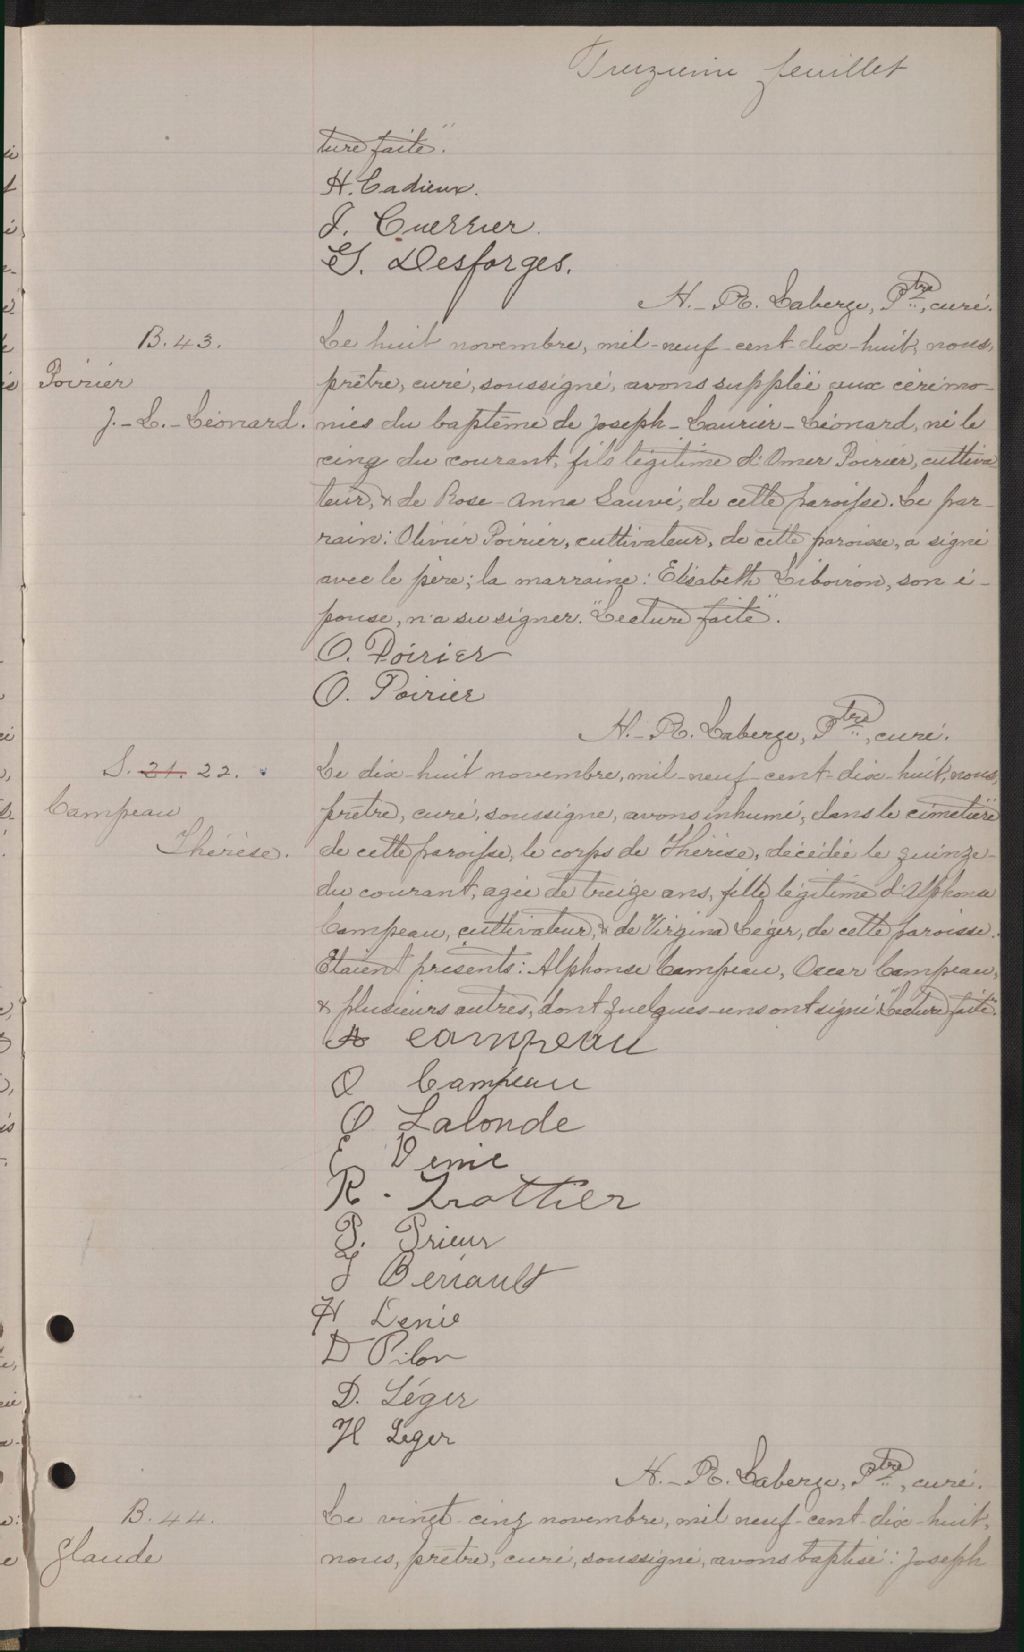 Treizième feuillet
ture faite".
H. Cadieux.
J. Guerrier.
G. Desforges.
H.-R. Laberge, Ptre, curé.
B. 43.
Poirier
J.-L.-Léonard.
Le huit novembre, mil-neuf-cent-dix-huit, nous,
prêtre, curé, soussigné, avons suppléé aux cérémo-
nies du baptême de Joseph-Laurier-Léonard, né le
cinq du courant, fils légitime d'Omer Poirier, cultiva
teur, & de Rose-Anna Sauvé, de cette paroisse. Le par-
rain: Olivier Poirier, cultivateur, de cette paroisse, a signé
avec le père; la marraine: Elisabeth Liboiron, son é-
pouse, n'a su signer. "Lecture faite".
O. Poirier
O. Poirier
H.-R. Laberge, Ptre, curé.
S. 21. 22.
Campeau
Thérèse.
Le dix-huit novembre, mil-neuf-cent-dix-huit, nous,
prêtre, curé, soussigné, avons inhumé, dans le cimetière
de cette paroisse, le corps de Thérèse, décédée le quinze
du courant, agée de treize ans, fille légitime d'Alphonse
Campeau, cultivateur, & de Virgina Léger, de cette paroisse.
Etaient présents: Alphonse Campeau, Oscar Campeau,
& plusieurs autres, dont quelques-uns ont signé. "Lecture faite".
A Campeau
O Campeau
O Lalonde
E Denie
R. Trottier
P. Prieur
J Beriault
H Denie
D Pilon
D. Léger
H Leger
H.-R. Laberge, Ptre, curé.
B. 44.
Glaude
Le vingt-cinq novembre, mil neuf-cent-dix-huit,
nous, prêtre, curé, soussigné, avons baptisé: Joseph